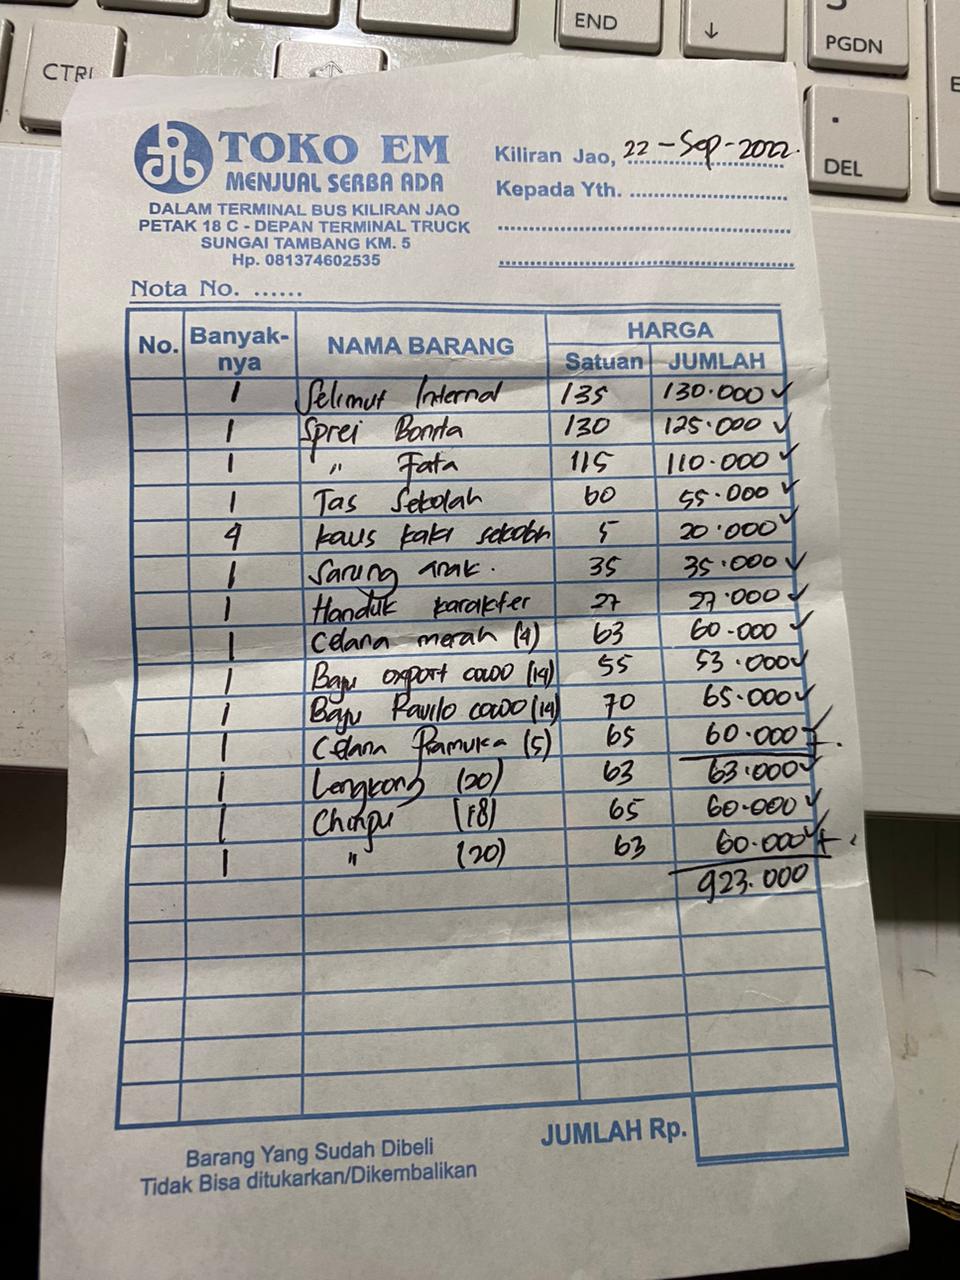 END
↓
PGDN
CTRL
DEL
TOKO EM
MENJUAL SERBA ADA
DALAM TERMINAL BUS KILIRAN JAO
PETAK 18 C - DEPAN TERMINAL TRUCK
SUNGAI TAMBANG KM. 5
Hp. 081374602535
Kiliran Jao, 22-Sep-2022.
Kepada Yth. ..............................
Nota No. ......
No. Banyak-nya NAMA BARANG HARGA
Satuan JUMLAH
1 Selimut Internal 135 130.000 ✓
1 Sprei Bonita 130 125.000 ✓
1 " Fata 115 110.000 ✓
1 Tas Sekolah 60 55.000 ✓
4 kaus kaki sekolah 5 20.000 ✓
1 Sarung anak. 35 35.000 ✓
1 Handuk karakter 27 27.000 ✓
1 Celana merah (4) 63 60.000 ✓
1 Baju export cowo (14) 55 53.000 ✓
1 Baju Ravilo cowo (14) 70 65.000 ✓
1 Celana Pramuka (5) 65 60.000 ✓
1 Lengkong (20) 63 63.000 ✓
1 (18) 65 60.000 ✓
1 " (20) 63 60.000 ✓ +
923.000
JUMLAH Rp.
Barang Yang Sudah Dibeli
Tidak Bisa ditukarkan/Dikembalikan